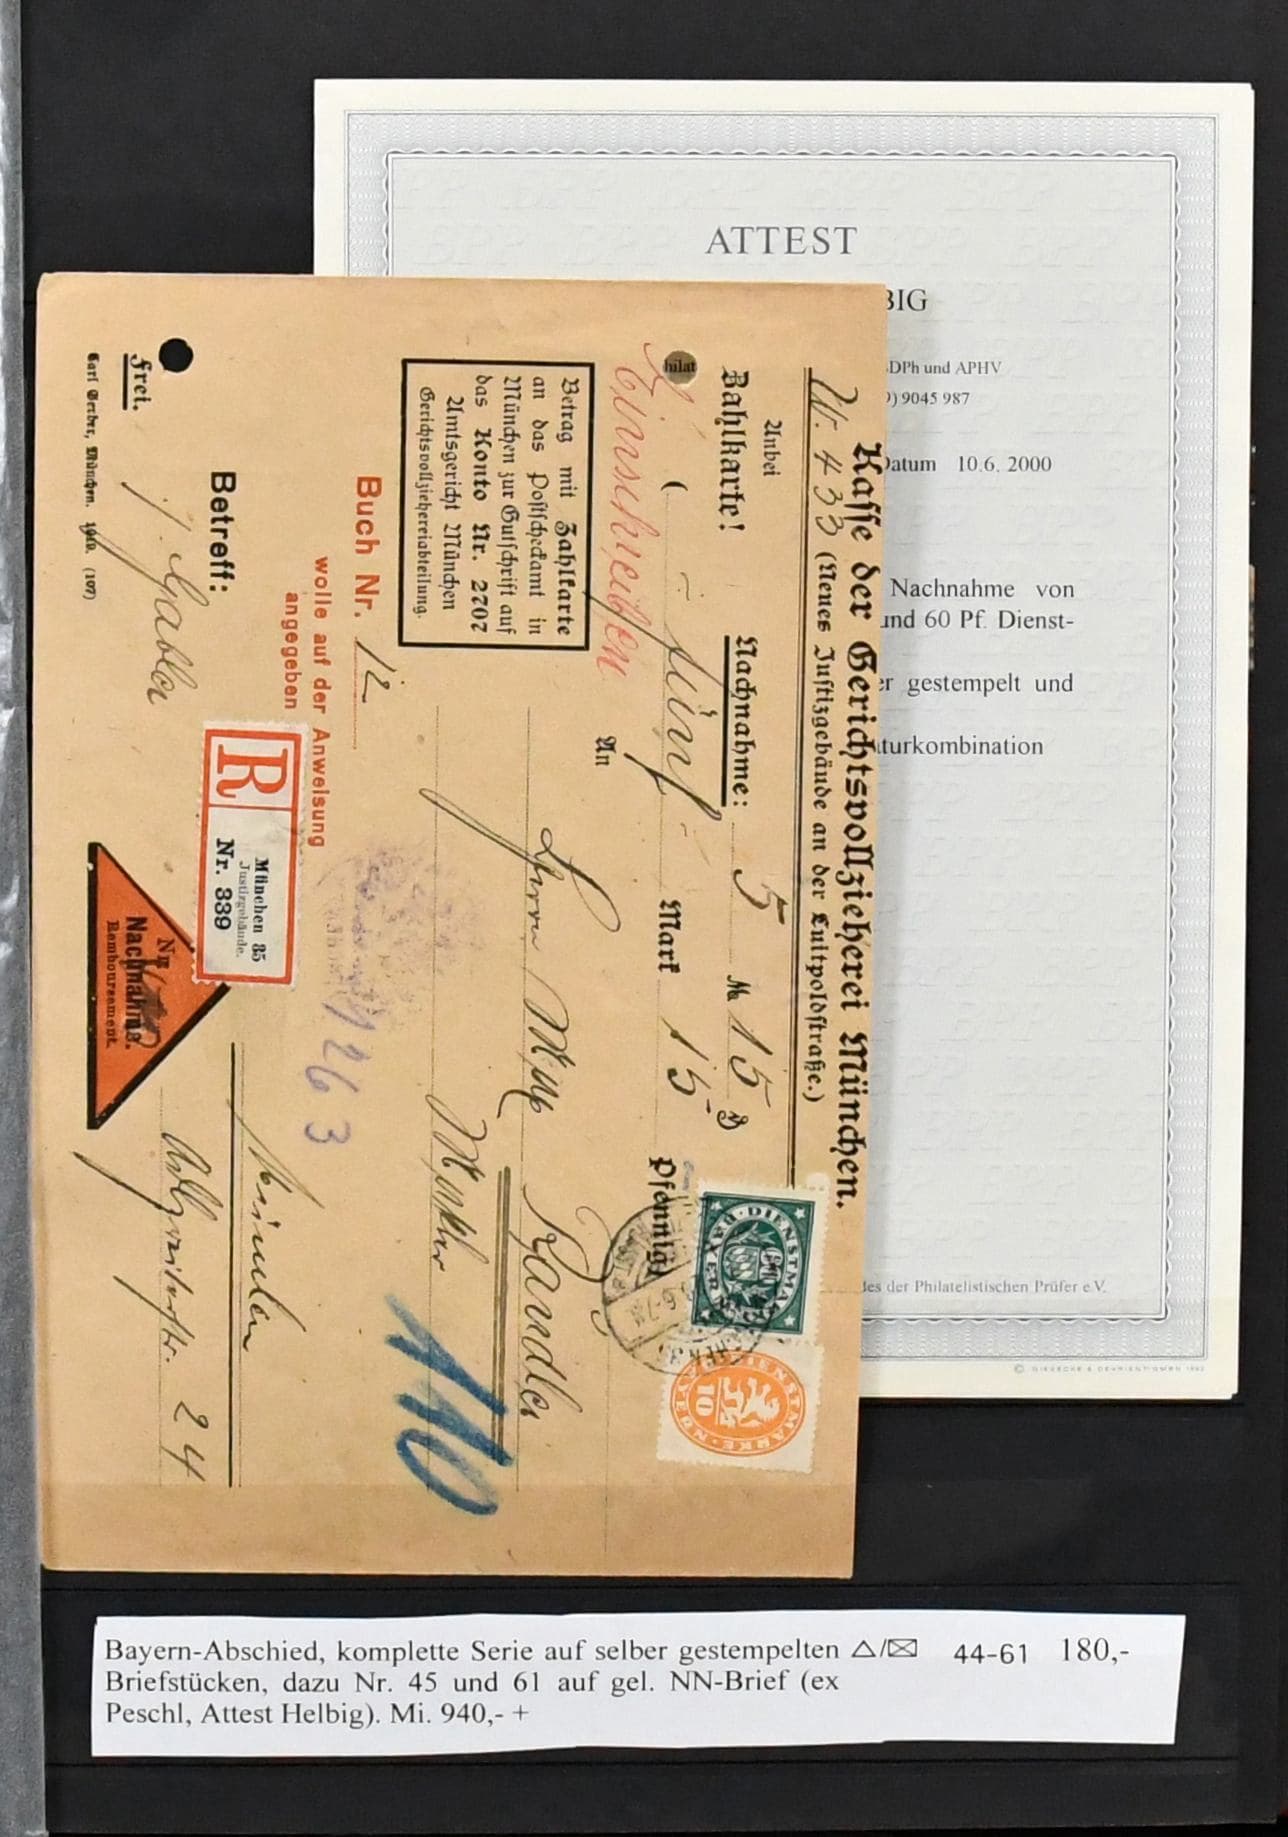 ATTEST
BIG
BDPh und APHV
9045 987
Datum 10.6. 2000
Nachnahme von
und 60 Pf. Dienst-
er gestempelt und
aturkombination
des der Philatelistischen Prüfer e.V.
© GIESECKE & DEVRIENT GMBH 1992
Kasse der Gerichtsvollzieherei München.
433 (Neues Justizgebäude an der Luitpoldstraße.)
Anbei
Zahlkarte!
Nachnahme: 5 M 15 ₰
hilat
( fünf Mark 15 Pfennig
Einschreiben
An
Herrn Max Randler
Betrag mit Zahlkarte
an das Postscheckamt in
München zur Gutschrift auf
das Konto Nr. 2707
Amtsgericht München
Gerichtsvollziehereiabteilung.
Buch Nr. 12
wolle auf der Anweisung
angegeben
Betreff:
frei.
Carl Gerber, München. (107)
R
München 35
Justizgebäude.
Nr. 339
Nr.
Nachnahme.
Remboursement.
1263
110
München
24
DIENSTMARKE
BAYERN
60
DIENSTMARKE
BAYERN
10
Bayern-Abschied, komplette Serie auf selber gestempelten △/✉ 44-61 180,-
Briefstücken, dazu Nr. 45 und 61 auf gel. NN-Brief (ex
Peschl, Attest Helbig). Mi. 940,- +